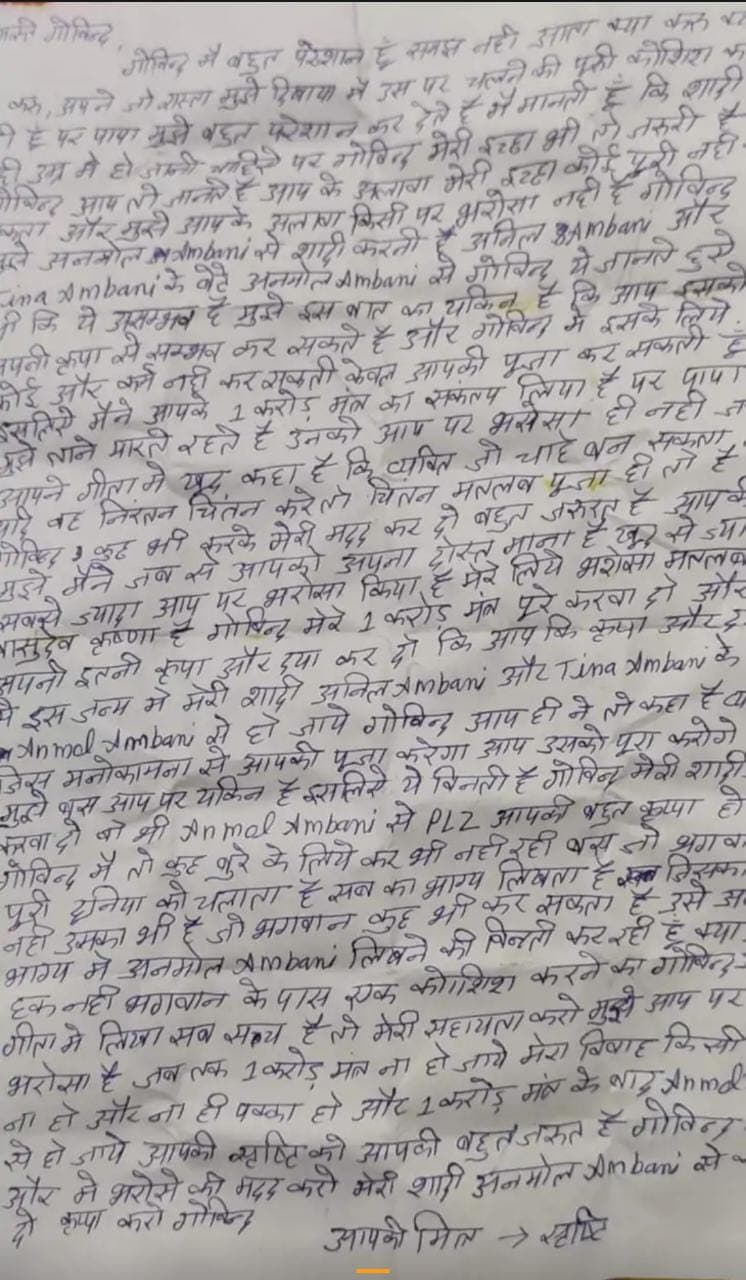 गोविन्द,
गोविन्द मै बहुत परेशान हूँ समझ नही आता क्या करू
करू, आपने जो रास्ता मुझे दिखाया मै उस पर चलने की पूरी कोशिश
है पर पापा मुझे बहुत परेशान कर देते है मै मानती हूँ कि शादी
उम्र मे हो जानी चाहिये पर गोविन्द मेरी इच्छा भी तो जरुरी है
गोविन्द आप तो जानते है आप के अलावा मेरी इच्छा कोई पूरी नही
और मुझे आपके अलावा किसी पर भरोसा नही है गोविन्द
मुझे अनमोल Ambani से शादी करनी है अनिल Ambani और
Tina Ambani के बेटे अनमोल Ambani से गोविन्द ये जानते हुये
भी कि ये असम्भव है मुझे इस बात का यकिन है कि आप इसको
अपनी कृपा से सम्भव कर सकते है और गोविन्द मै इसके लिये
कोई और कर्म नही कर सकती केवल आपकी पूजा कर सकती हूँ
इसलिये मैने आपके 1 करोड़ मंत्र का संकल्प लिया है पर पापा
मुझे ताने मारते रहते है उनको आप पर भरोसा ही नही
आपने गीता मे खुद कहा है कि व्यक्ति जो चाहे बन सकता
यदि वह निरंतन चिंतन करे तो चिंतन मतलब पूजा ही तो है
गोविन्द कुछ भी करके मेरी मदद कर दो बहुत जरुरत है आपकी
मुझे मैने जब से आपको अपना दोस्त माना है खुद से
सबसे ज्यादा आप पर भरोसा किया है मेरे लिये भरोसा मतलब
वासुदेव कृष्णा है गोविन्द मेरे 1 करोड़ मंत्र पूरे करवा दो और
अपनी इतनी कृपा और दया कर दो कि आप कि कृपा और
से इस जन्म मे मेरी शादी अनिल Ambani और Tina Ambani के
Anmol Ambani से हो जाये गोविन्द आप ही ने तो कहा है
जिस मनोकामना से आपकी पूजा करेगा आप उसको पूरा करोगे
मुझे बस आप पर यकिन है इसलिये ये विनती है गोविन्द मेरी शादी
करवा दो वो भी Anmol Ambani से PLZ आपकी बहुत कृपा हो
गोविन्द मै तो कुछ बुरे के लिये कर भी नही रही बस जो
पूरी दुनिया को चलाता है सब का भाग्य लिखता है जिसका
नही उसका भी है जो भगवान कुछ भी कर सकता है उसे
भाग्य मे अनमोल Ambani लिखने की विनती कर रही हूँ क्या
हक नही भगवान के पास एक कोशिश करने का गोविन्द
गीता मे लिखा सब सत्य है तो मेरी सहायता करो मुझे आप पर
भरोसा है जब तक 1 करोड़ मंत्र ना हो जाये मेरा विवाह किसी
ना हो और ना ही पक्का हो और 1 करोड़ मंत्र के बाद Anmol
से हो जाये आपकी सृष्टि को आपकी बहुत जरुत है गोविन्द
और मे भरोसे की मदद करो मेरी शादी अनमोल Ambani से
दो कृपा करो गोविन्द
आपकी मित्र → सृष्टि